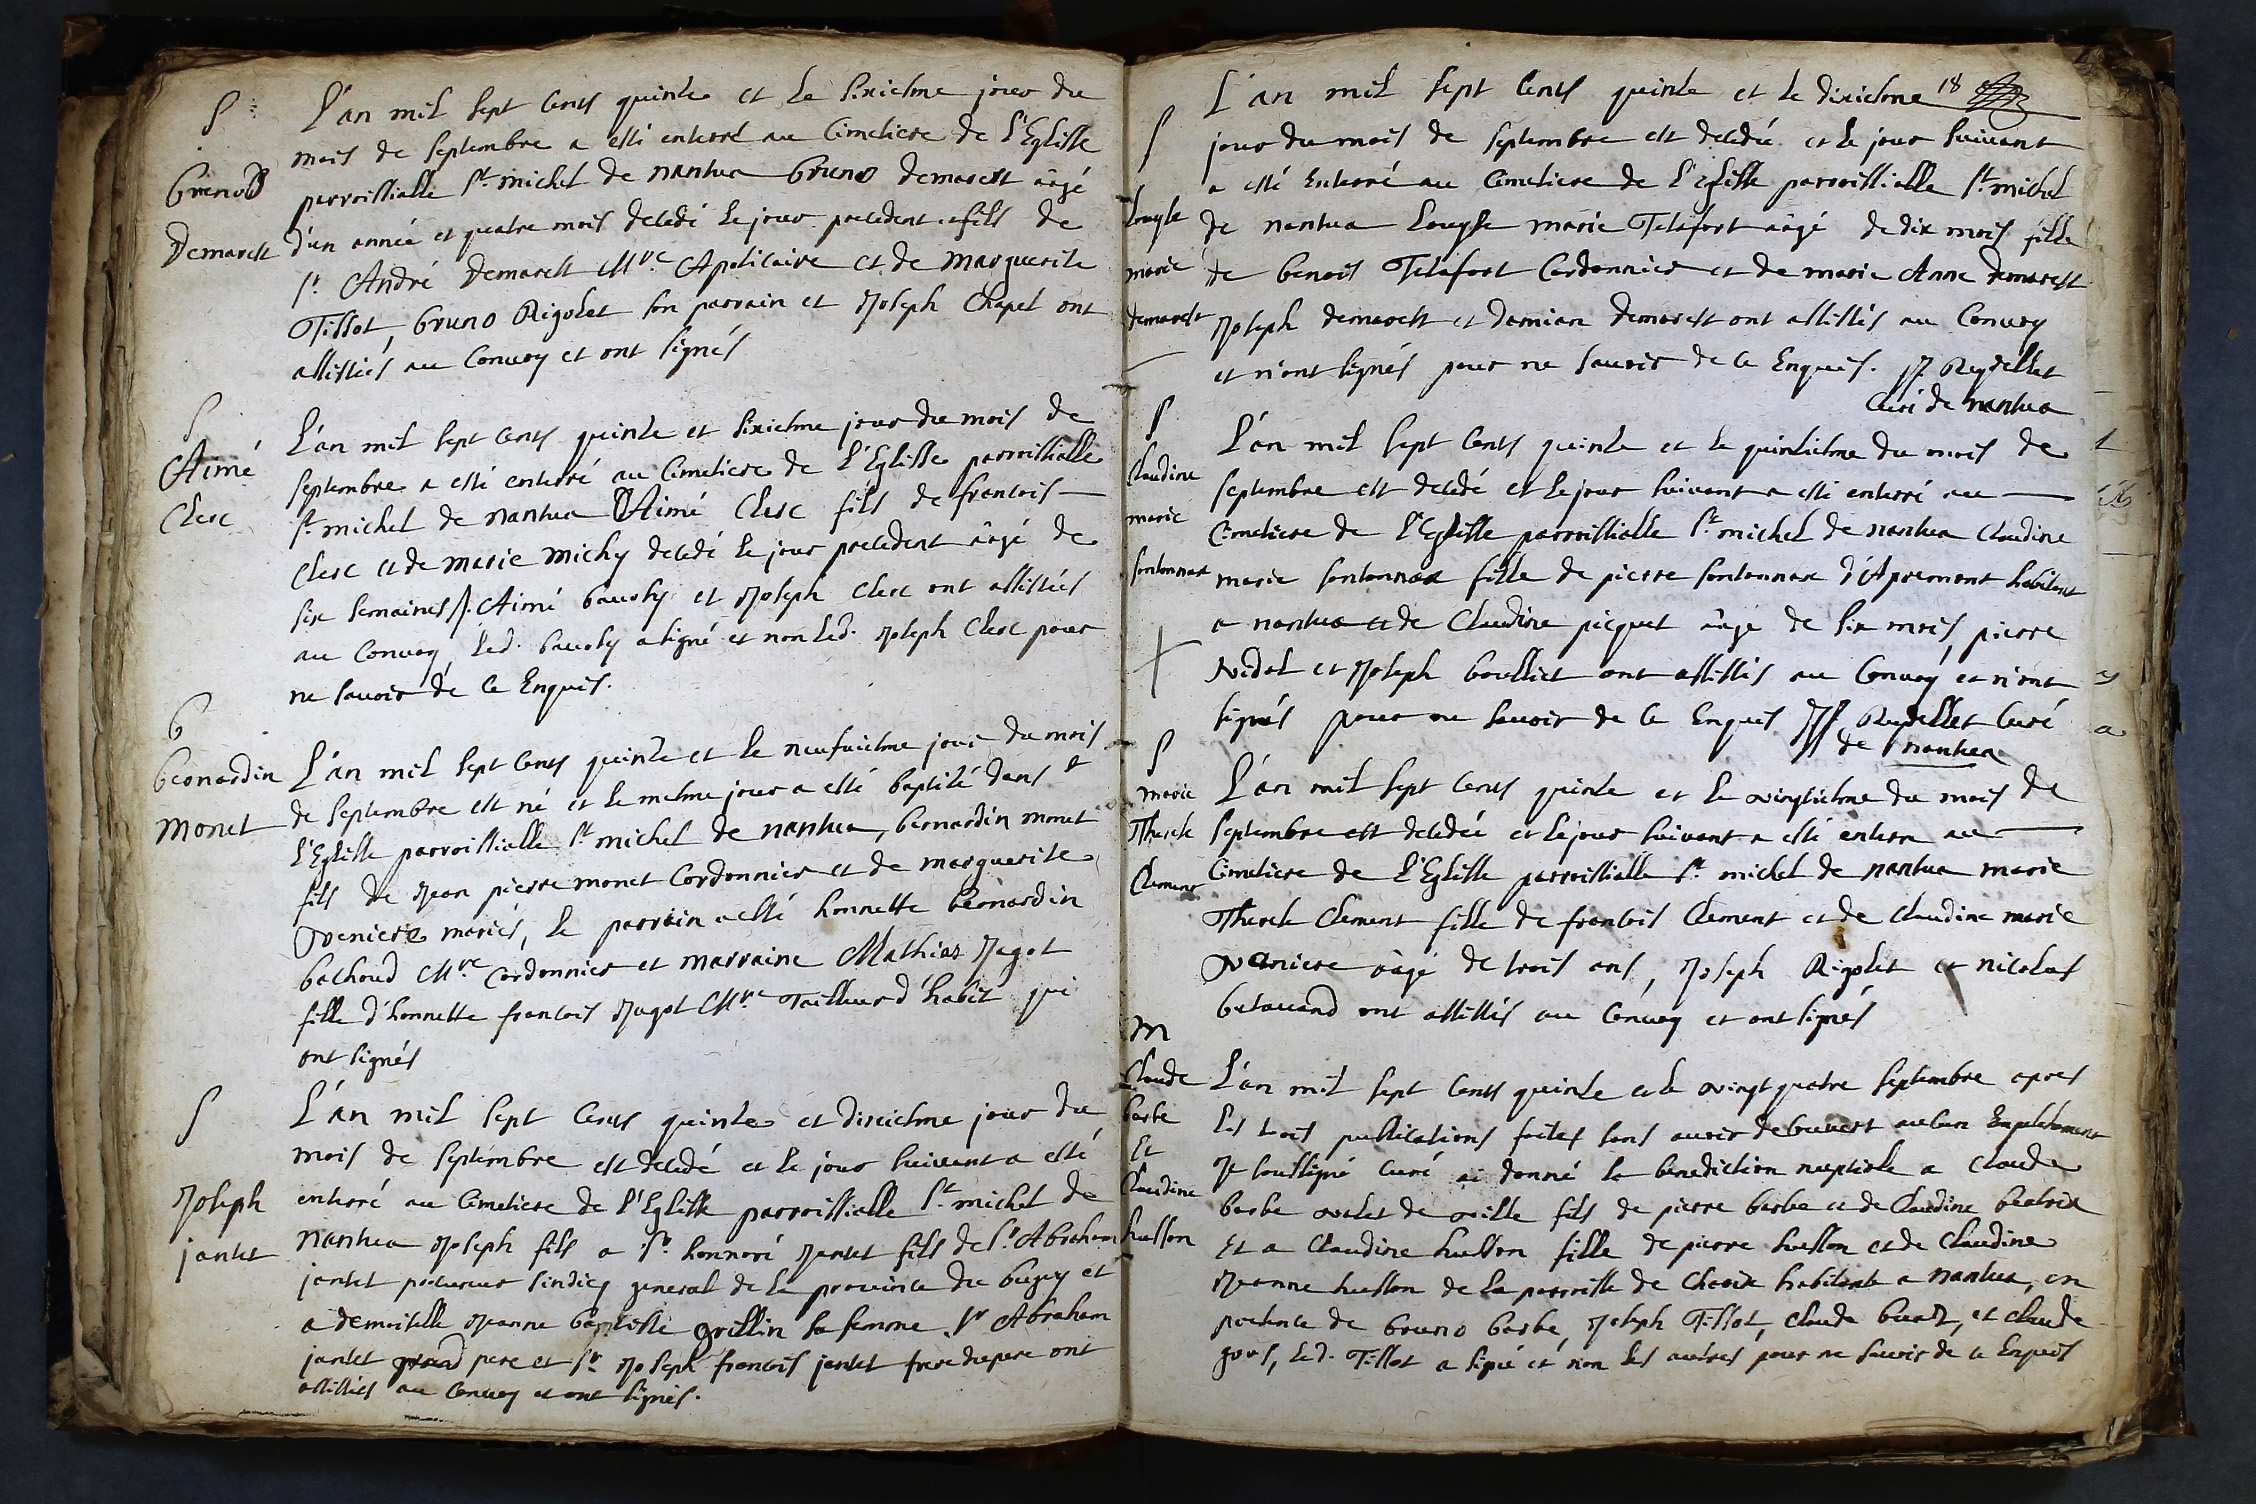 S
Bruno
Demarest
L'an mil sept cents quinze et le sixiesme jour du
mois de septembre a esté enterré au cimetiere de l'Eglisse
parroissialle St. michel de nantua bruno demarest aagé
d'un année et quatre mois decedé le jour precedent fils de
sr. André Demarest Mre. Apoticaire et de marguerite
Tissot, bruno Rigolet son parrain et Joseph Chapel ont
assistés au Convoy et ont signés
S
Aimé
Clerc
L'an mil sept cents quinze et sixiesme jour du mois de
septembre a esté enterré au Cimetiere de L'Eglisse parroissialle
St. michel de nantua Aimé Clerc fils de francois
Clerc et de marie michy decedé le jour precedent âgé de
six semaines. Aimé bauoly et Joseph Clerc ont assistés
au Convoy, led. bauoly a signé et non led. Joseph Clerc pour
ne sauoir de ce Enquis.
B
bernardin
monet
L'an mil sept cents quinze et le neufuiesme jour du mois
de septembre est né et le mesme jour a esté baptizé dans
l'Eglisse parroissialle St. michel de nantua, bernardin monet
fils de Jean pierre monet Cordonnier et de marguerite
Veniere mariés, le parrain a esté honnette bernardin
bachoud Mre. Cordonnier et marraine Mathias Jagot
fille d'honnette francois Jagot Mre. Tailleur d'habit qui
ont signés
S
Joseph
jantet
L'an mil sept cents quinze et dixiesme jour du
mois de septembre est decedé et le jour suiuant a esté
enterré au Cimetiere de l'Eglisse parroissialle St. michel de
Nantua Joseph fils a sr. honnoré Jantet fils de sr. Abraham
jantet procureur sindicq general de la prouince du bugey et
a demoiselle Jeanne baptiste grillin sa femme. sr Abraham
jantet grand pere et sr. Joseph francois jantet frere du pere ont
assistés au Conuoy et ont signés.
18
S
Louyse
marie
demarest
L'an mil sept cents quinze et le dixiesme
jour du mois de septembre est decedée et le jour suiuant
a esté Enterré au Cimetiere de l'Eglisse parroissialle St. michel
de nantua Louyse marie Telafort aagé de dix mois fille
de benoit Telafort Cordonnier et de marie Anne demarest
Joseph demarest et damian demarest ont assistés au Convoy
et n'ont signés pour ne sauoir de ce Enquis. J. Reydellet
Curé de nantua
S
Claudine
marie
sontonnax
L'an mil sept cents quinze et le quinziesme du mois de
septembre est decedé et le jour suiuant a esté enterré au
Cimetiere de l'Eglisse parroissialle St. michel de nantua Claudine
marie sontonnax fille de pierre sontonnax d'Apremont habitant
a nantua et de Claudine picquet âagé de six mois, pierre
Nidol et Joseph boulliet ont assistés au Convoy et n'ont
signés pour ne sauoir de ce Enquis J. Reydellet Curé
de nantua
S
marie
Therese
Clement
L'an mil sept cents quinze et le vingtiesme du mois de
septembre est decedée et le jour suiuant a esté enterré au
Cimetiere de l'Eglisse parroissialle St. michel de nantua marie
Therese Clement fille de francois Clement et de Claudine marie
Vaniere aagé de trois ans, Joseph Rigolet et nicolas
betauand ont assistés au Convoy et ont signés
M
Claude
barbe
Et
Claudine
husson
L'an mil sept cents quinze et le vingt quatre septembre apres
les trois publications faites sans auoir decouvert aucun Empechement
Je soussigné Curé ai donné la benediction nuptiale a Claude
barbe valet de ville fils de pierre barbe et de Claudine beatrix
Et a Claudine husson fille de pierre husson et de Claudine
Jeanne husson de la parroisse de Charix habitante a nantua, en
presence de bruno barbe, Joseph Tissot, Claude et Claude
gros, led. Tissot a signé et non les autres pour ne sauoir de ce Enquis